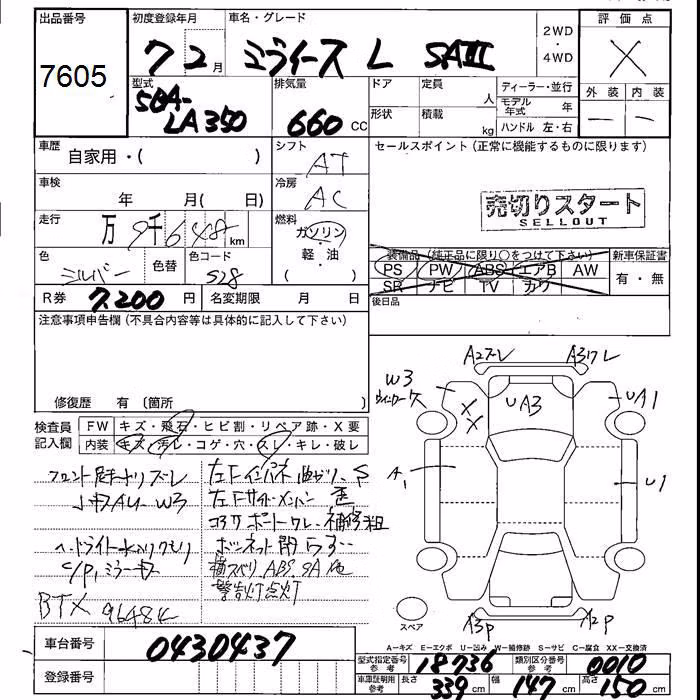 出品番号 初度登録年月 車名・グレード 評価点
7605 7 2月 ミライース L SAⅢ 2WD ・ 4WD X
型式 排気量 ドア 定員 人 ディーラー・並行 外装 内装
5BA-LA350 660 CC 形状 積載 kg モデル年式 年 ハンドル 左・右 — —
車歴 自家用・( ) シフト AT セールスポイント(正常に機能するものに限ります)
車検 年 月( 日) 冷房 AC
売切りスタート
SELLOUT
走行 万 9千648 km 燃料 ガソリン・軽・油 ( )
色 シルバー 色替 色コード S28
装備品(純正品に限り○をつけて下さい) 新車保証書
PS PW ABS エアB AW 有・無
SR ナビ TV カワ
R券 7.200 円 名変期限 月 日 後日品
注意事項申告欄(不具合内容等は具体的に記入して下さい)
修復歴 有(箇所 )
検査員記入欄 FW キズ・飛石・ヒビ割・リペア跡・X要
内装 キズ・汚レ・コゲ・穴・スレ・キレ・破レ
A2ズレ A3ワレ
W3
XX UA3 UA1
A1 U1
A3P A2P
スペア
左Fインパネ曲がり、S
左Fサイドメンバー 歪
コアサポートワレ、補修粗
ヘッドライト水入リクモリ
ボンネット開らず
横スベリ ABS SA 他
警告灯点灯
C/P, ミラーキズ
BTX 96484
A-キズ E-エクボ U-凹み W-補修跡 S-サビ C-腐食 XX-交換済
車台番号 0430437
型式指定番号参考 18736 類別区分番号参考 0010
登録番号
車庫証明用参考 長さ 339 cm 幅 147 cm 高さ 150 cm